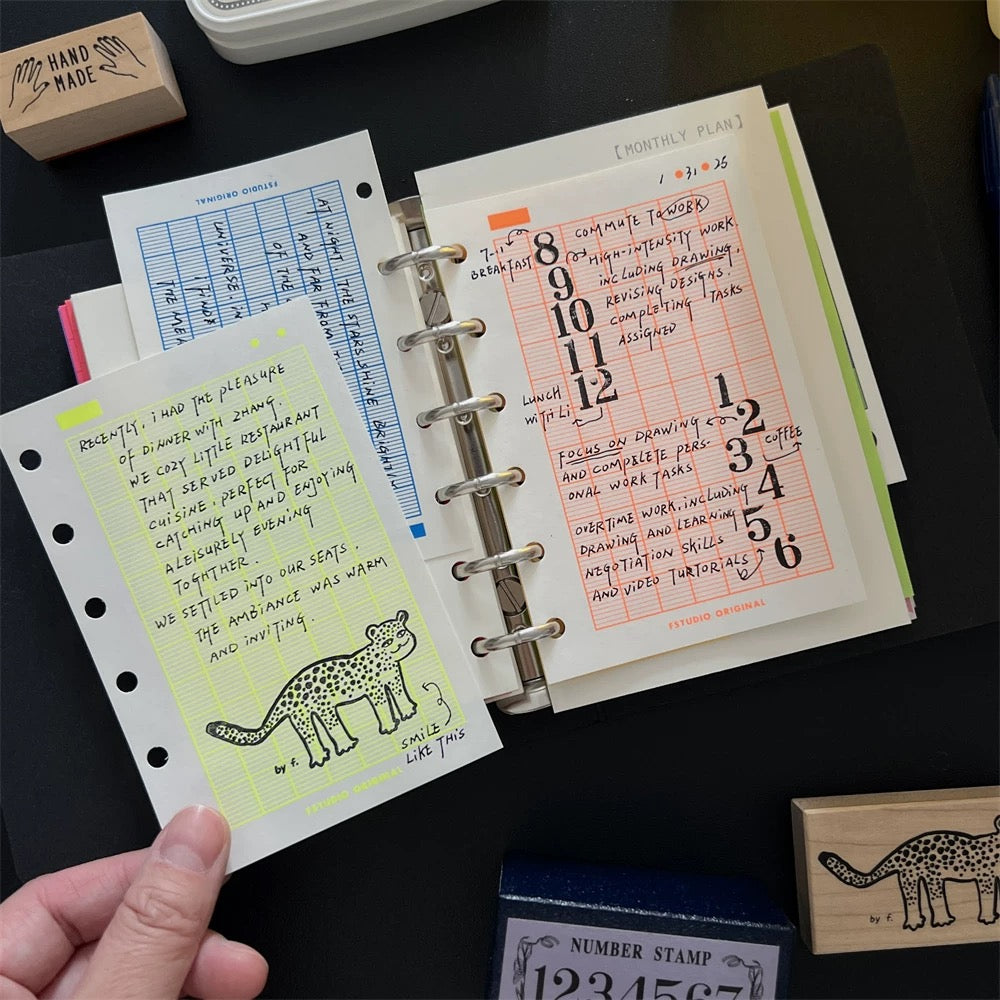 HAND
MADE
FSTUDIO ORIGINAL
AT NIGHT, THE STARS SHINE BRIGHTLY
AND FAR FROM
OF THE
UNIVERSE. IN
I FIND
THE
RECENTLY, I HAD THE PLEASURE
OF DINNER WITH ZHANG.
WE COZY LITTLE RESTAURANT
THAT SERVED DELIGHTFUL
CUISINE, PERFECT FOR
CATCHING UP AND ENJOYING
A LEISURELY EVENING
TOGHTHER.
WE SETTLED INTO OUR SEATS.
THE AMBIANCE WAS WARM
AND INVITING.
by f.
SMILE
LIKE THIS
FSTUDIO ORIGINAL
[MONTHLY PLAN]
1 • 31 • 25
7-11
BREAKFAST
8
COMMUTE TO WORK
9
HIGH-INTENSITY WORK,
INCLUDING DRAWING,
REVISING DESIGNS.
COMPLETING TASKS
ASSIGNED
10
11
12
LUNCH
WITH Li
1
2
3
COFFEE
FOCUS ON DRAWING
AND COMPLETE PERS-
ONAL WORK TASKS
4
5
6
OVERTIME WORK, INCLUDING
DRAWING AND LEARNING
NEGOTIATION SKILLS
AND VIDEO TURTORIALS
FSTUDIO ORIGINAL
by f.
NUMBER STAMP
1234567